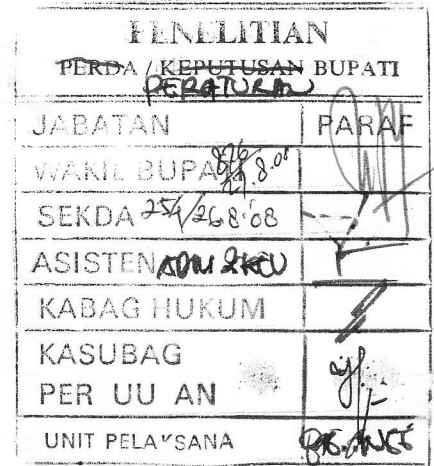 PENELITIAN
PERDA / KEPUTUSAN BUPATI
PERATURAN
JABATAN PARAF
WAKIL BUPATI 876/27.8.08
SEKDA 254/26.8.08
ASISTEN ADM & KEU
KABAG HUKUM
KASUBAG
PER UU AN
UNIT PELAKSANA